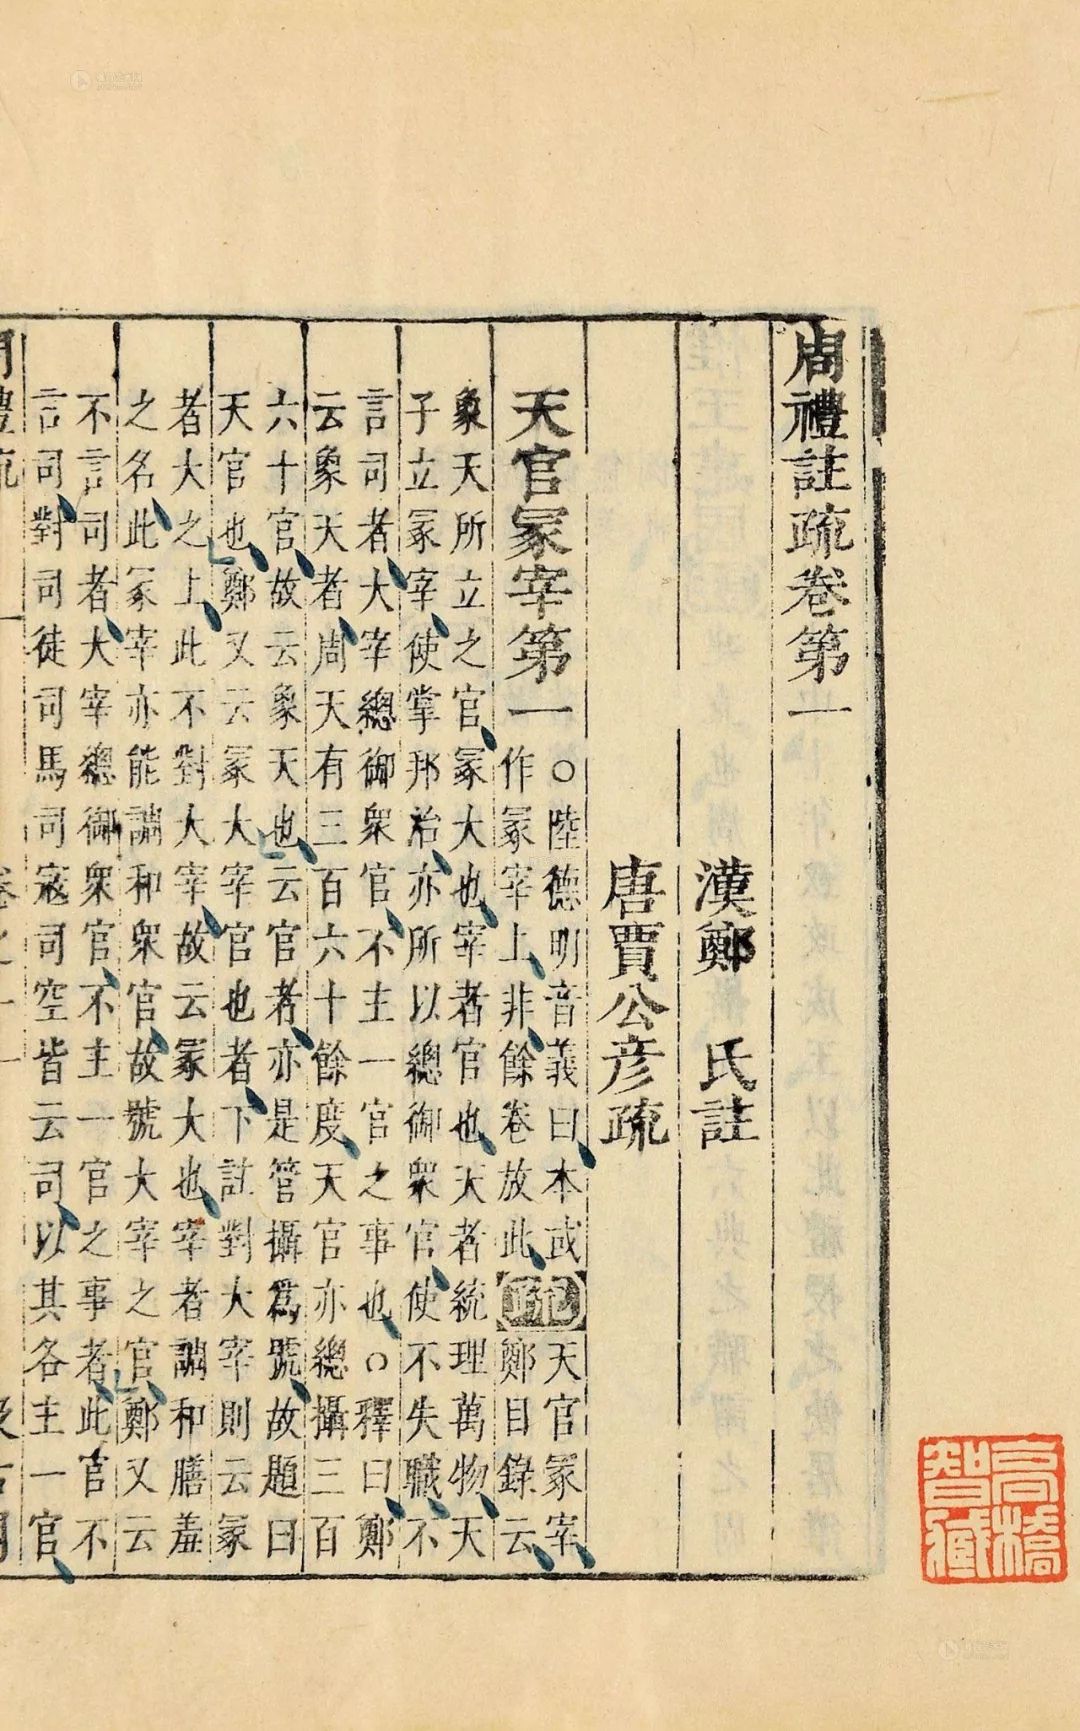 周禮註疏卷第一
漢鄭　氏註
唐賈公彦疏
天官冢宰第一
○陸德明音義曰本或
作冢宰上非餘卷放此
疏
天官冢宰
鄭目錄云
象天所立之官冢大也宰者官也天者統理萬物天
子立冢宰使掌邦治亦所以總御衆官使不失職不
言司者大宰總御衆官不主一官之事也○釋曰鄭
云象天者周天有三百六十餘度天官亦總攝三百
六十官故云象天也云官者亦是管攝爲號故題曰
天官也鄭又云冢大宰官也者下註對大宰則云冢
者大之上此不對大宰故云冢大也宰者調和膳羞
之名此冢宰亦能調和衆官故號大宰之官鄭又云
不言司者大宰總御衆官不主一官之事者此官不
言司對司徒司馬司寇司空皆云司以其各主一官
周禮疏　一　卷之一　一　汲古閣
高橋智藏